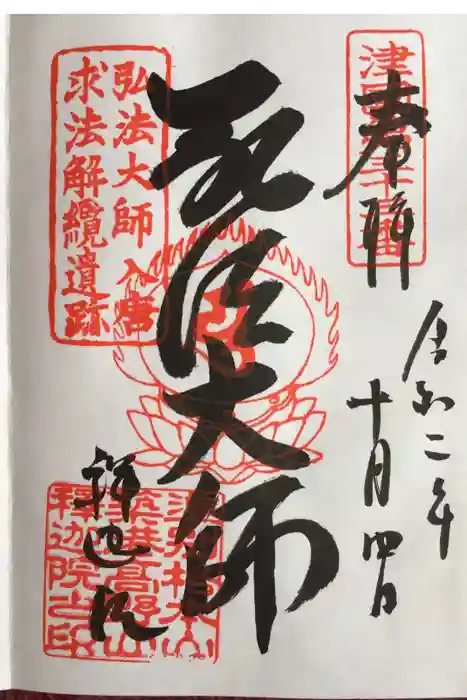 奉拝
令和二年
十月四日
弘法大師
弘法大師 入唐
求法解纜遺跡
釋迦院
釋迦院之印